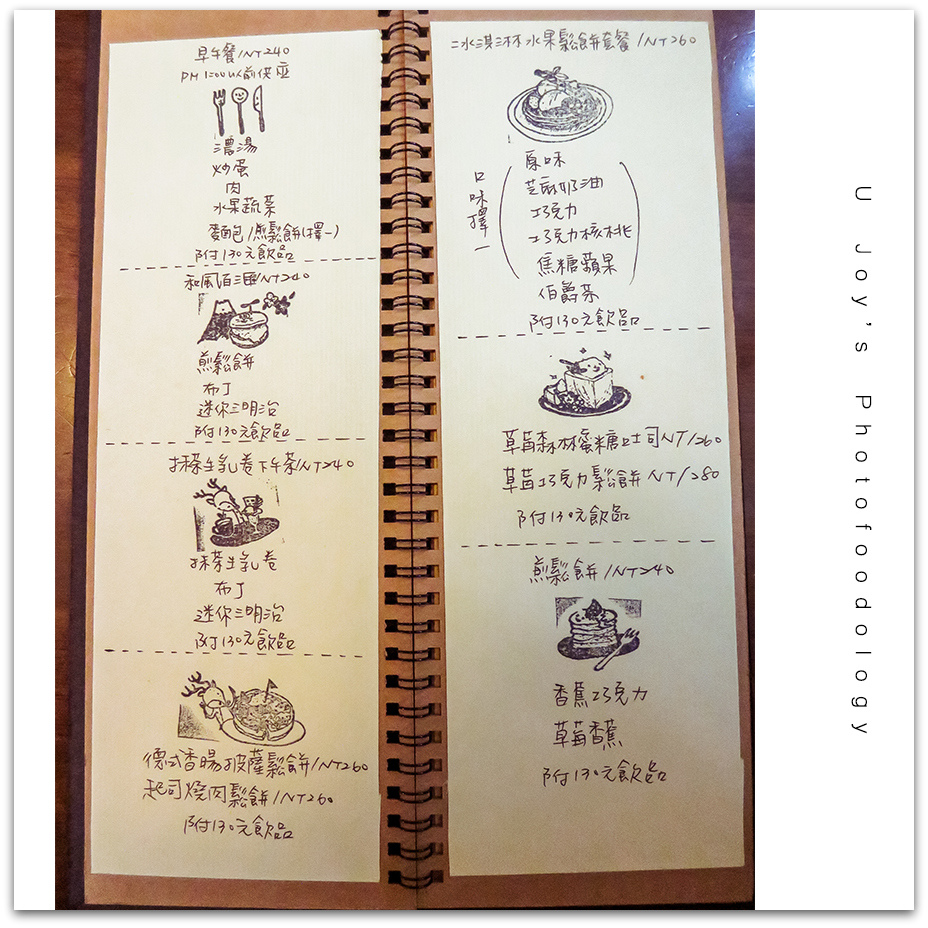 早午餐/NT240
PM 1:00以前供应
濃湯
炒蛋
肉
水果蔬菜
麵包/煎鬆餅(擇一)
附130元飲品
和風百匯/NT240
煎鬆餅
布丁
迷你三明治
附130元飲品
抹茶生乳卷下午茶/NT240
抹茶生乳卷
布丁
迷你三明治
附130元飲品
德式香腸披薩鬆餅/NT260
起司燒肉鬆餅/NT260
附130元飲品
冰淇淋水果鬆餅套餐/NT260
口味擇一
原味
芝麻奶油
巧克力
巧克力核桃
焦糖蘋果
伯爵茶
附130元飲品
草莓森林蜜糖吐司NT/260
草莓巧克力鬆餅NT/280
附130元飲品
煎鬆餅/NT240
香蕉巧克力
草莓香蕉
附130元飲品
U Joy's Photofoodology